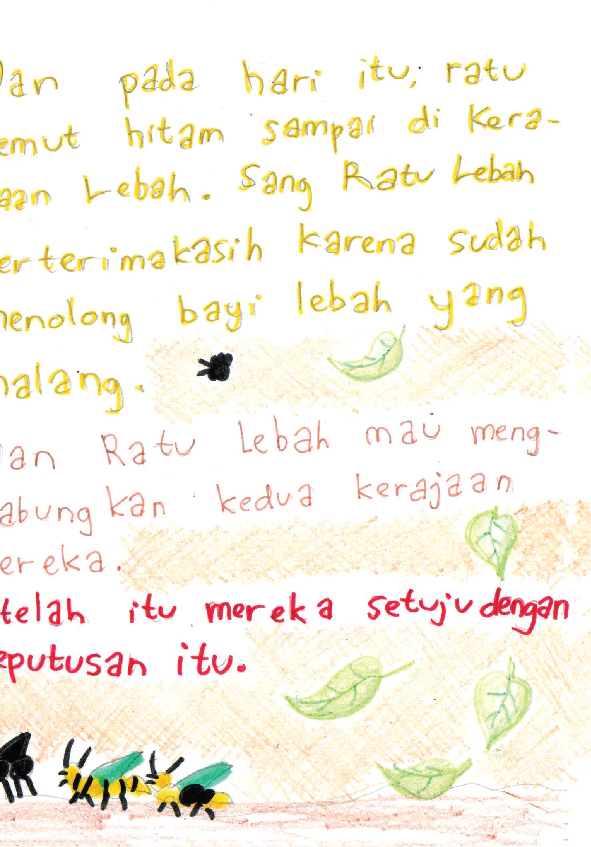 Dan pada hari itu, ratu
emut hitam sampai di Kera-
aan Lebah. Sang Ratu Lebah
erterimakasih karena sudah
menolong bayi lebah yang
malang.
an Ratu Lebah mau meng-
abungkan kedua kerajaan
ereka.
telah itu mereka setuju dengan
eputusan itu.